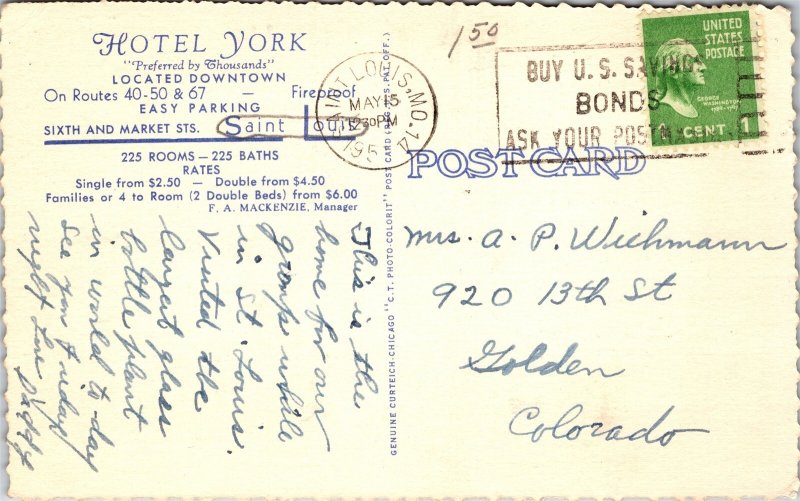 HOTEL YORK
"Preferred by Thousands"
LOCATED DOWNTOWN
On Routes 40-50 & 67 — Fireproof
EASY PARKING
SIXTH AND MARKET STS. Saint Louis
225 ROOMS — 225 BATHS
RATES
Single from $2.50 — Double from $4.50
Families or 4 to Room (2 Double Beds) from $6.00
F. A. MACKENZIE, Manager
This is the
home for our
group while
in St. Louis.
Visited the
largest glass
bottle plant
in world to-day
See you Friday
night Love Daddy
GENUINE CURTEICH-CHICAGO "C. T. PHOTO-COLORIT" POST CARD (REG. U.S. PAT. OFF.)
1 50
SAINT LOUIS, MO. 14
MAY 15
1230 PM
195
BUY U. S. SAVINGS
BONDS
ASK YOUR POSTM
UNITED
STATES
POSTAGE
GEORGE
WASHINGTON
1789-1797
1 CENT 1
POST CARD
Mrs. A. P. Wichmann
920 13th St
Golden
Colorado